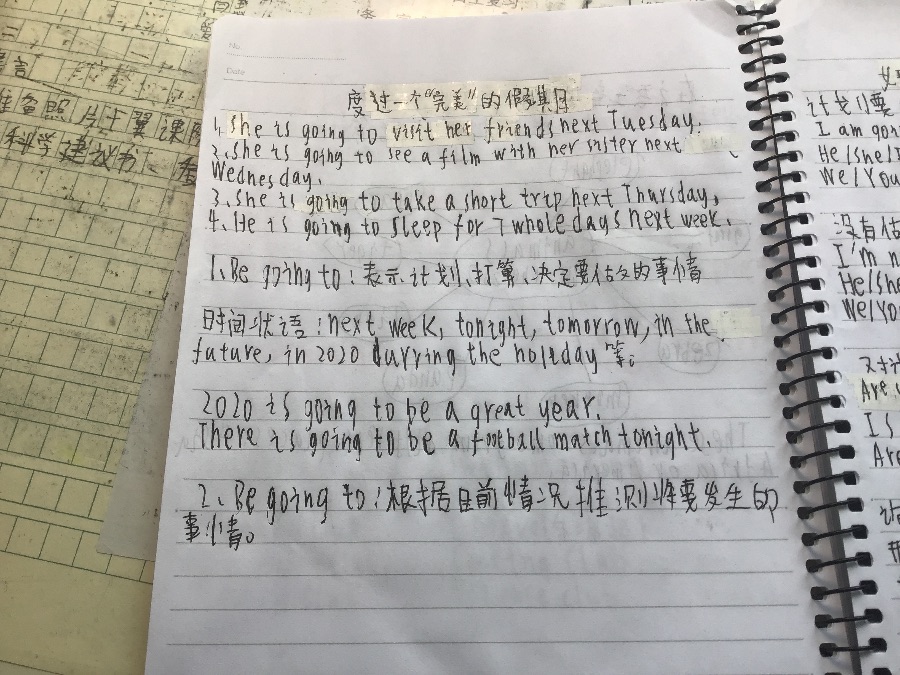 No.
Date
度过一个"完美"的假期
1. She is going to visit her friends next Tuesday.
2. She is going to see a film with her sister next
Wednesday.
3. She is going to take a short trip next Thursday.
4. He is going to sleep for 7 whole days next week.
1. Be going to: 表示计划、打算、决定要做的事情
时间状语: next week, tonight, tomorrow, in the
future, in 2020 durring the holiday 等。
2020 is going to be a great year.
There is going to be a football match tonight.
2. Be going to: 根据目前情况推测将要发生的
事情。
计划要
I am goin
He/she/I
We/You
没有
I'm n
He/she
We/You
对
Are
Is
Are
准备照片十翼课
科学建议书